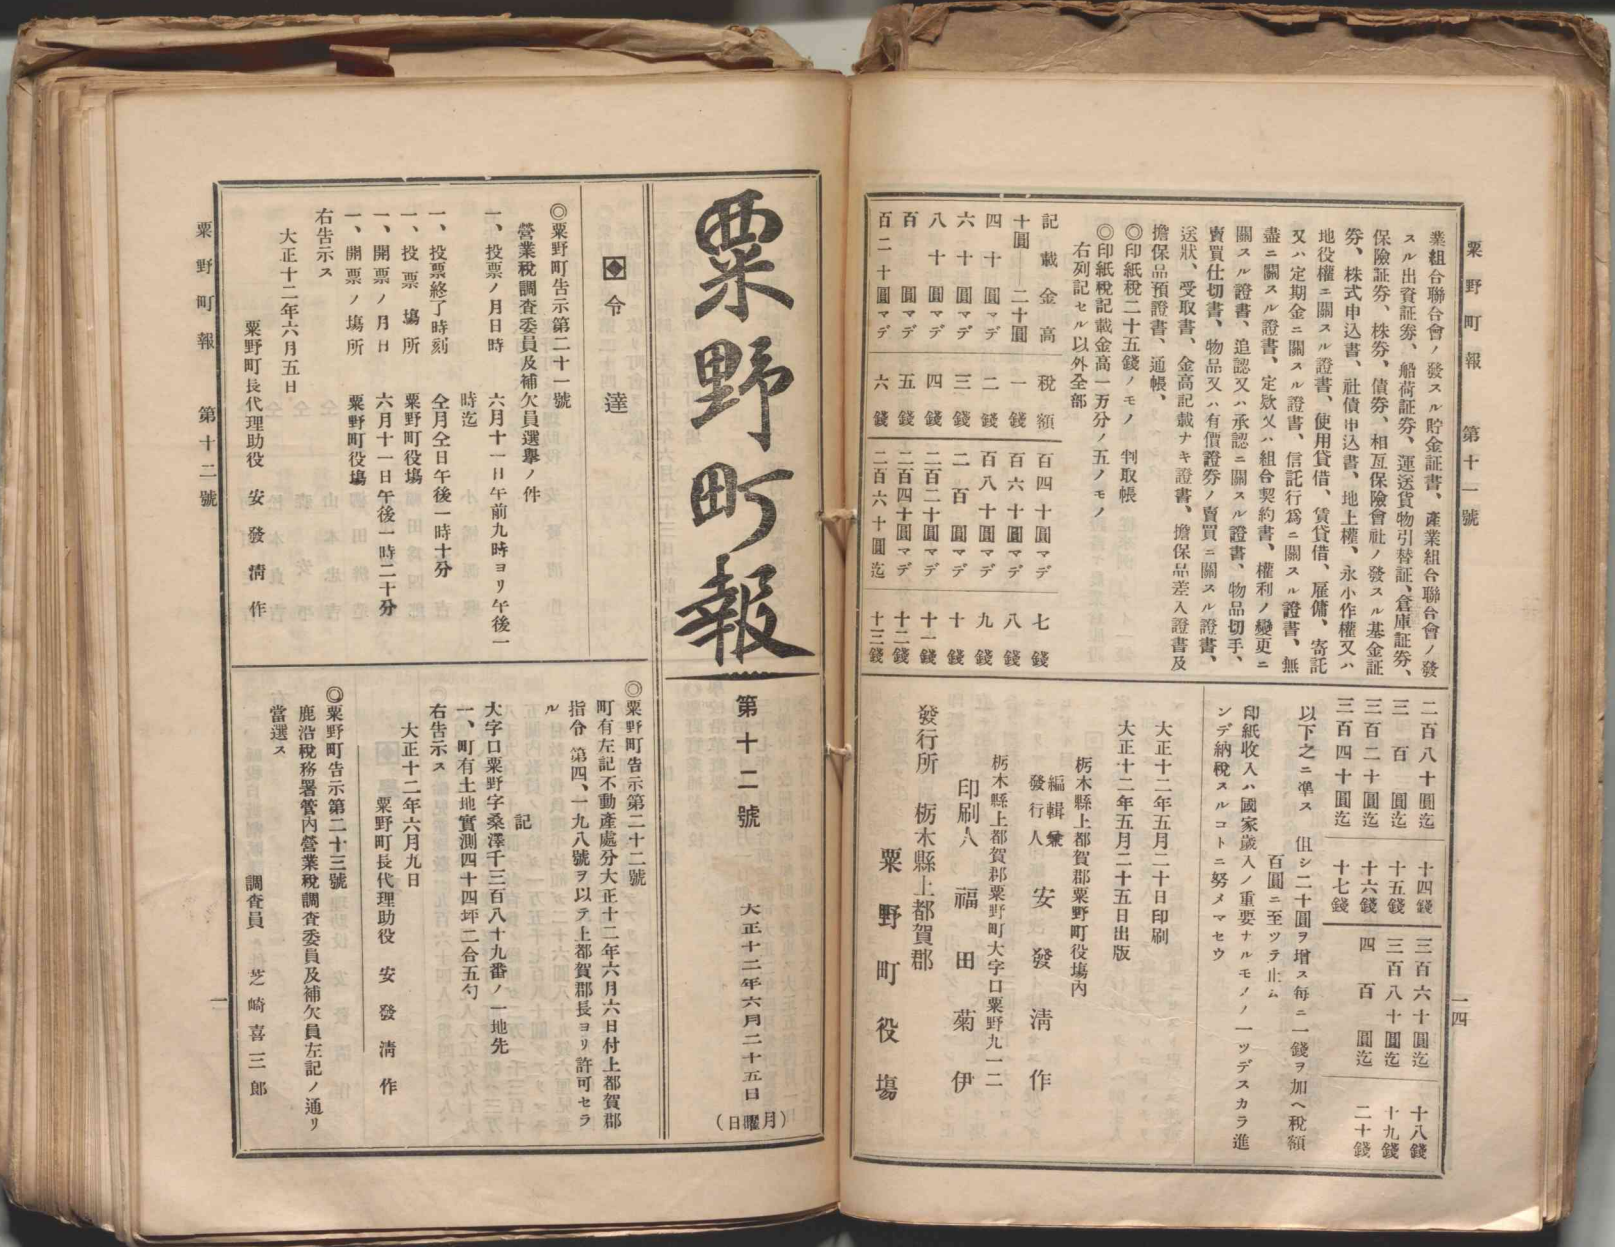 粟野町報 第十一號
一四
業組合聯合會ノ發スル貯金証書、產業組合聯合會ノ發
スル出資証券、船荷証券、運送貨物引替証、倉庫証券、
保險証券、株券、債券、相互保險會社ノ發スル基金証
券、株式申込書、社債申込書、地上權、永小作權又ハ
地役權ニ關スル證書、使用貸借、賃貸借、雇傭、寄託
又ハ定期金ニ關スル證書、信託行爲ニ關スル證書、無
盡ニ關スル證書、定欵又ハ組合契約書、權利ノ變更ニ
關スル證書、追認又ハ承認ニ關スル證書、物品切手、
賣買仕切書、物品又ハ有價證券ノ賣買ニ關スル證書、
送狀、受取書、金高記載ナキ證書、擔保品差入證書及
擔保品預證書、通帳、
◎印紙稅二十五錢ノモノ 判取帳
◎印紙稅記載金高一万分ノ五ノモノ
右列記セル以外全部
記載金高 稅額 百四十圓マデ 七錢
十圓―二十圓 一錢 百六十圓マデ 八錢
四十圓マデ 二錢 百八十圓マデ 九錢
六十圓マデ 三錢 二百圓マデ 十錢
八十圓マデ 四錢 二百二十圓マデ 十一錢
百圓マデ 五錢 二百四十圓マデ 十二錢
百二十圓マデ 六錢 二百六十圓迄 十三錢
二百八十圓迄 十四錢 三百六十圓迄 十八錢
三百圓迄 十五錢 三百八十圓迄 十九錢
三百二十圓迄 十六錢 四百圓迄 二十錢
三百四十圓迄 十七錢
以下之ニ準ス 但シ二十圓ヲ增ス每ニ一錢ヲ加ヘ稅額
百圓ニ至ツテ止ム
印紙收入ハ國家歲入ノ重要ナルモノノ一ツデスカラ進
ンデ納稅スルコトニ努メマセウ
大正十二年五月二十日印刷
大正十二年五月二十五日出版
栃木縣上都賀郡粟野町役塲內
編輯兼
發行人 安發淸作
栃木縣上都賀郡粟野町大字口粟野九一二
印刷人 福田菊伊
發行所 栃木縣上都賀郡
粟野町役塲
粟野町報
第十二號 大正十二年六月二十五日
(月曜日)
令達
◎粟野町告示第二十一號
營業稅調査委員及補欠員選擧ノ件
一、投票ノ月日時 六月十一日午前九時ヨリ午後一
時迄
一、投票終了時刻 仝月仝日午後一時十分
一、投票塲所 粟野町役塲
一、開票ノ月日 六月十一日午後一時二十分
一、開票ノ塲所 粟野町役塲
右告示ス
大正十二年六月五日
粟野町長代理助役 安發淸作
◎粟野町告示第二十二號
町有左記不動產處分大正十二年六月六日付上都賀郡
指令第四、一九八號ヲ以テ上都賀郡長ヨリ許可セラ
ル
記
大字口粟野字桑澤千三百八十九番ノ一地先
一、町有土地實測四十四坪二合五勺
右告示ス
大正十二年六月九日
粟野町長代理助役 安發淸作
◎粟野町告示第二十三號
鹿沼稅務署管內營業稅調査委員及補欠員左記ノ通リ
當選ス
調査員 芝崎喜三郎
粟野町報 第十二號
一